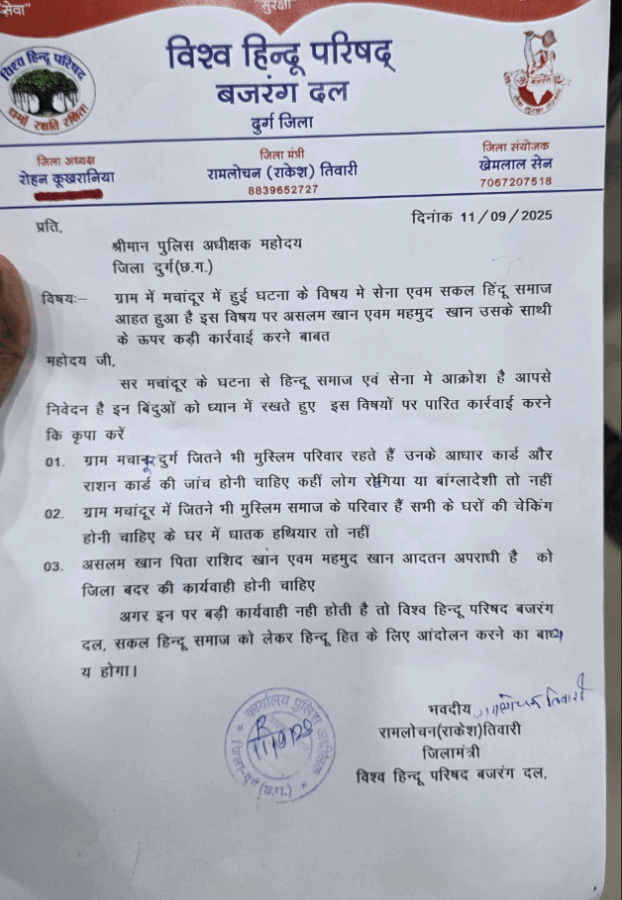 सेवा"
सुरक्षा"
विश्व हिन्दू परिषद्
बजरंग दल
दुर्ग जिला
विश्व हिन्दू परिषद
धर्मो रक्षति रक्षितः
जिला अध्यक्ष
रोहन कूखरानिया
जिला मंत्री
रामलोचन (राकेश) तिवारी
8839652727
जिला संयोजक
खेमलाल सेन
7067207518
प्रति,
दिनांक 11/09/2025
श्रीमान पुलिस अधीक्षक महोदय
जिला दुर्ग(छ.ग.)
विषयः– ग्राम में मचांदूर में हुई घटना के विषय मे सेना एवम सकल हिंदू समाज
आहत हुआ है इस विषय पर असलम खान एवम महमुद खान उसके साथी
के ऊपर कड़ी कार्रवाई करने बाबत
महोदय जी,
सर मचांदूर के घटना से हिन्दू समाज एवं सेना मे आक्रोश है आपसे
निवेदन है इन बिंदुओं को ध्यान में रखते हुए इस विषयों पर पारित कार्रवाई करने
कि कृपा करें
01. ग्राम मचानूर दुर्ग जितने भी मुस्लिम परिवार रहते हैं उनके आधार कार्ड और
राशन कार्ड की जांच होनी चाहिए कहीं लोग रोगिया या बांग्लादेशी तो नहीं
02. ग्राम मचांदूर में जितने भी मुस्लिम समाज के परिवार हैं सभी के घरों की चेकिंग
होनी चाहिए के घर में धातक हथियार तो नहीं
03. असलम खान पिता राशिद खान एवम महमुद खान आदतन अपराधी है को
जिला बदर की कार्यवाही होनी चाहिए
अगर इन पर बड़ी कार्यवाही नही होती है तो विश्व हिन्दू परिषद बजरंग
दल, सकल हिन्दू समाज को लेकर हिन्दू हित के लिए आंदोलन करने का बाध
य होगा।
भवदीय
तिवारी
रामलोचन(राकेश)तिवारी
जिलामंत्री
विश्व हिन्दू परिषद बजरंग दल,
कार्यालय पुलिस अधीक्षक
जिला-दुर्ग (छ.ग.)